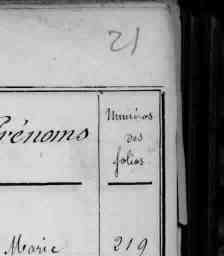 21
Prénoms
Numéros
des
folios
Marie 219